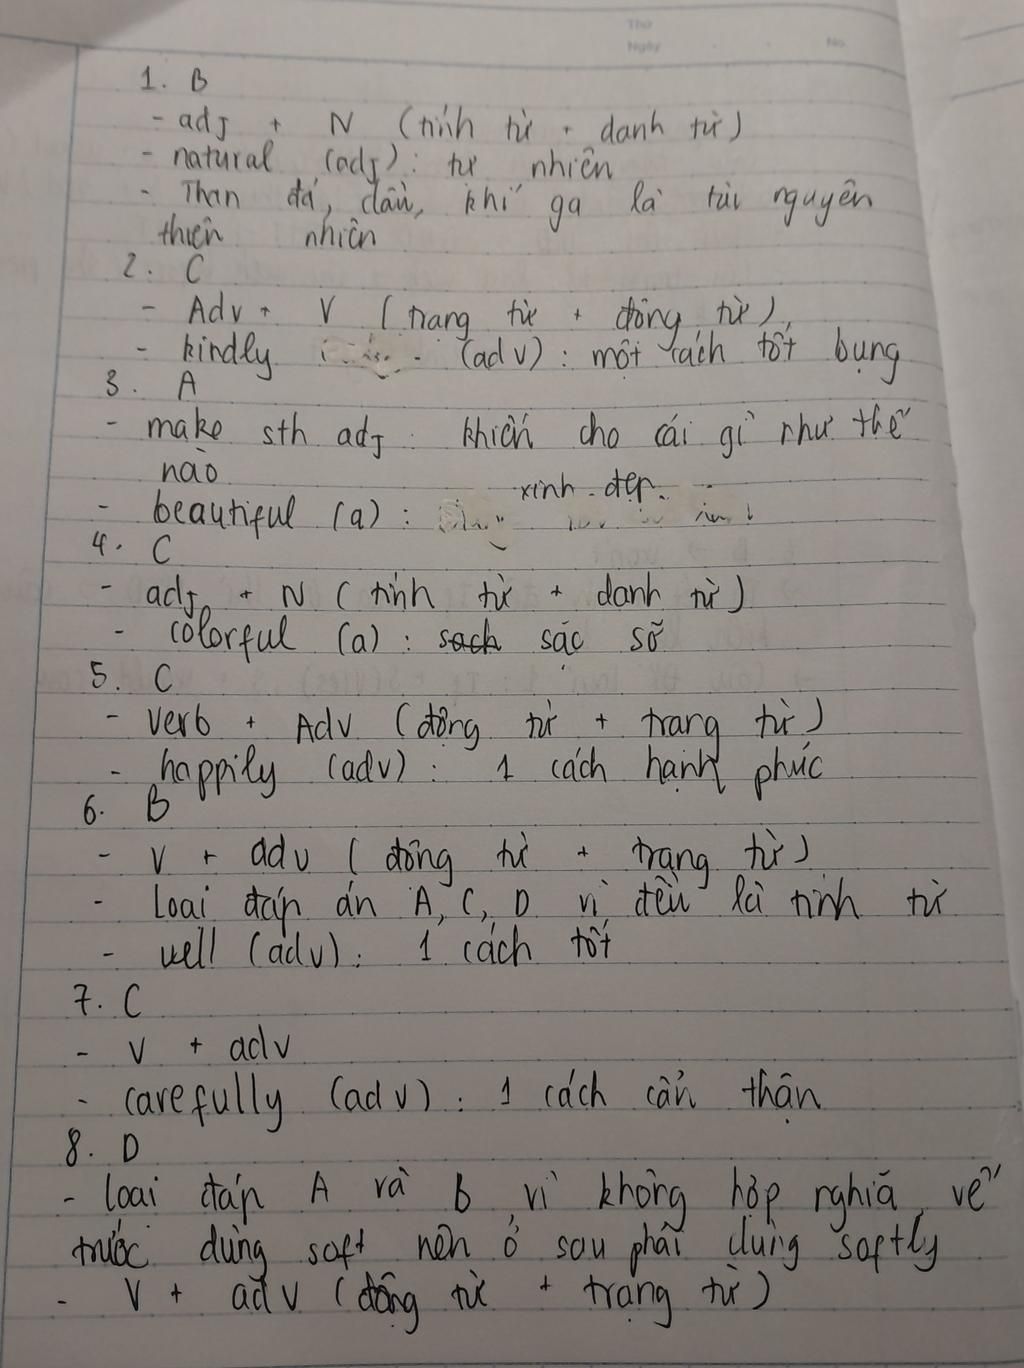 Thứ
Ngày . . No.
1. B
- adj + N (tính từ + danh từ)
- natural (adj): tự nhiên
- Than đá, dầu, khí ga là tài nguyên
thiên nhiên
2. C
- Adv + V (trạng từ + động từ)
- kindly (adv): một cách tốt bụng
3. A
- make sth adj: khiến cho cái gì như thế
nào
- beautiful (a): xinh đẹp.
4. C
- adj + N (tính từ + danh từ)
- colorful (a): sach sặc sỡ
5. C
- verb + Adv (động từ + trạng từ)
- happily (adv): 1 cách hạnh phúc
6. B
- V + adv (động từ + trạng từ)
- Loại đáp án A, C, D vì đều là tính từ
- well (adv): 1 cách tốt
7. C
- V + adv
- carefully (adv): 1 cách cẩn thận
8. D
- loại đáp A và B vì không hợp nghĩa, vế
trước dùng soft nên ở sau phải dùng softly
- V + adv (động từ + trạng từ)